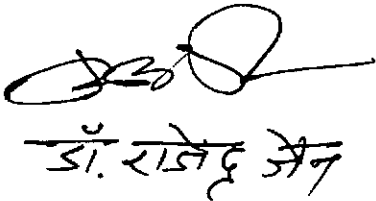 डॉ. राजेन्द्र जैन